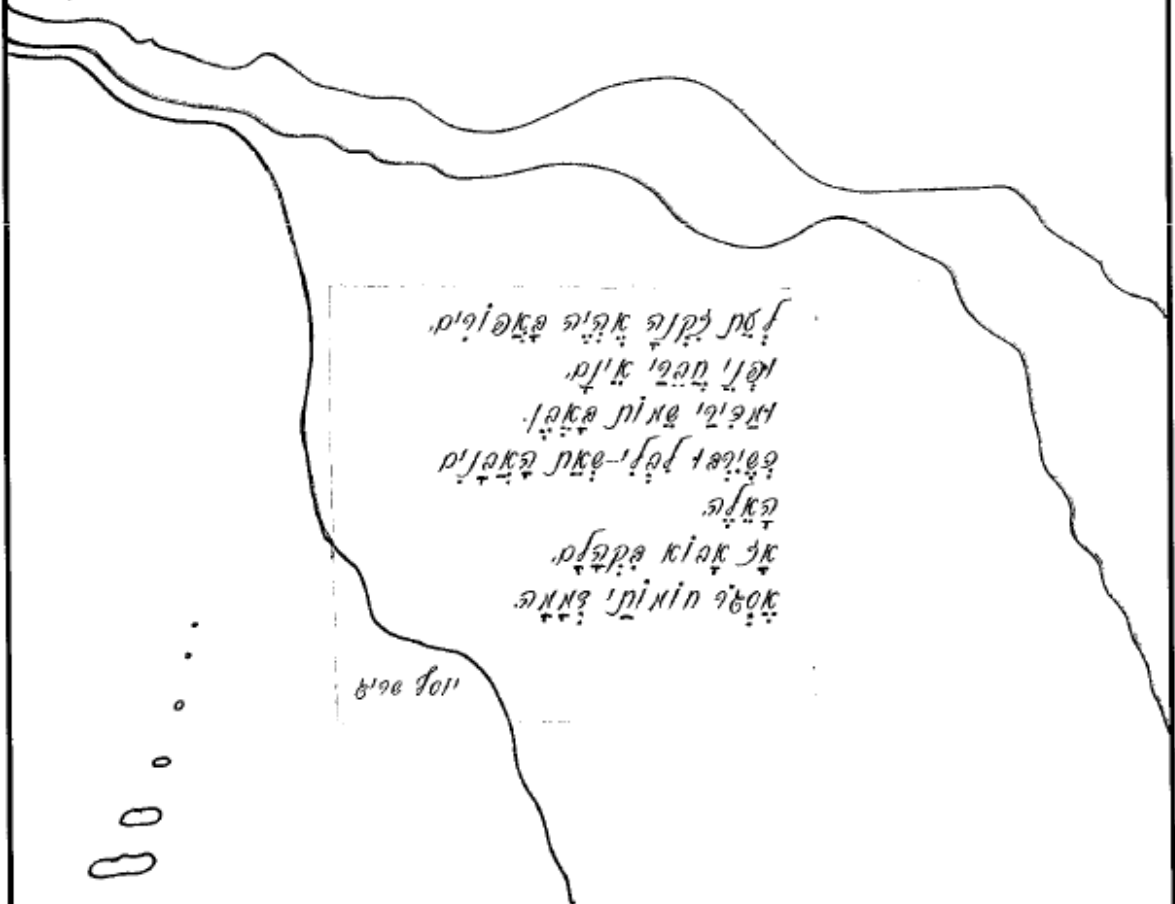 לְעֵת זִקְנָה אֶהְיֶה כָּאֲפוֹרִים,
וּפְנֵי חֲבֵרַי אֵינָם,
וּמַכִּירַי שֵׁמוֹת בָּאֶבֶן.
כְּשֶׁיִּרְבּוּ לִבְלִי-שְׂאֵת הָאֲבָנִים
הָאֵלֶּה.
אָז אָבוֹא בִּקְהָלָם,
אֶסָּגֵר חוֹמוֹתַי דְּמָמָה.
יוסף שריג